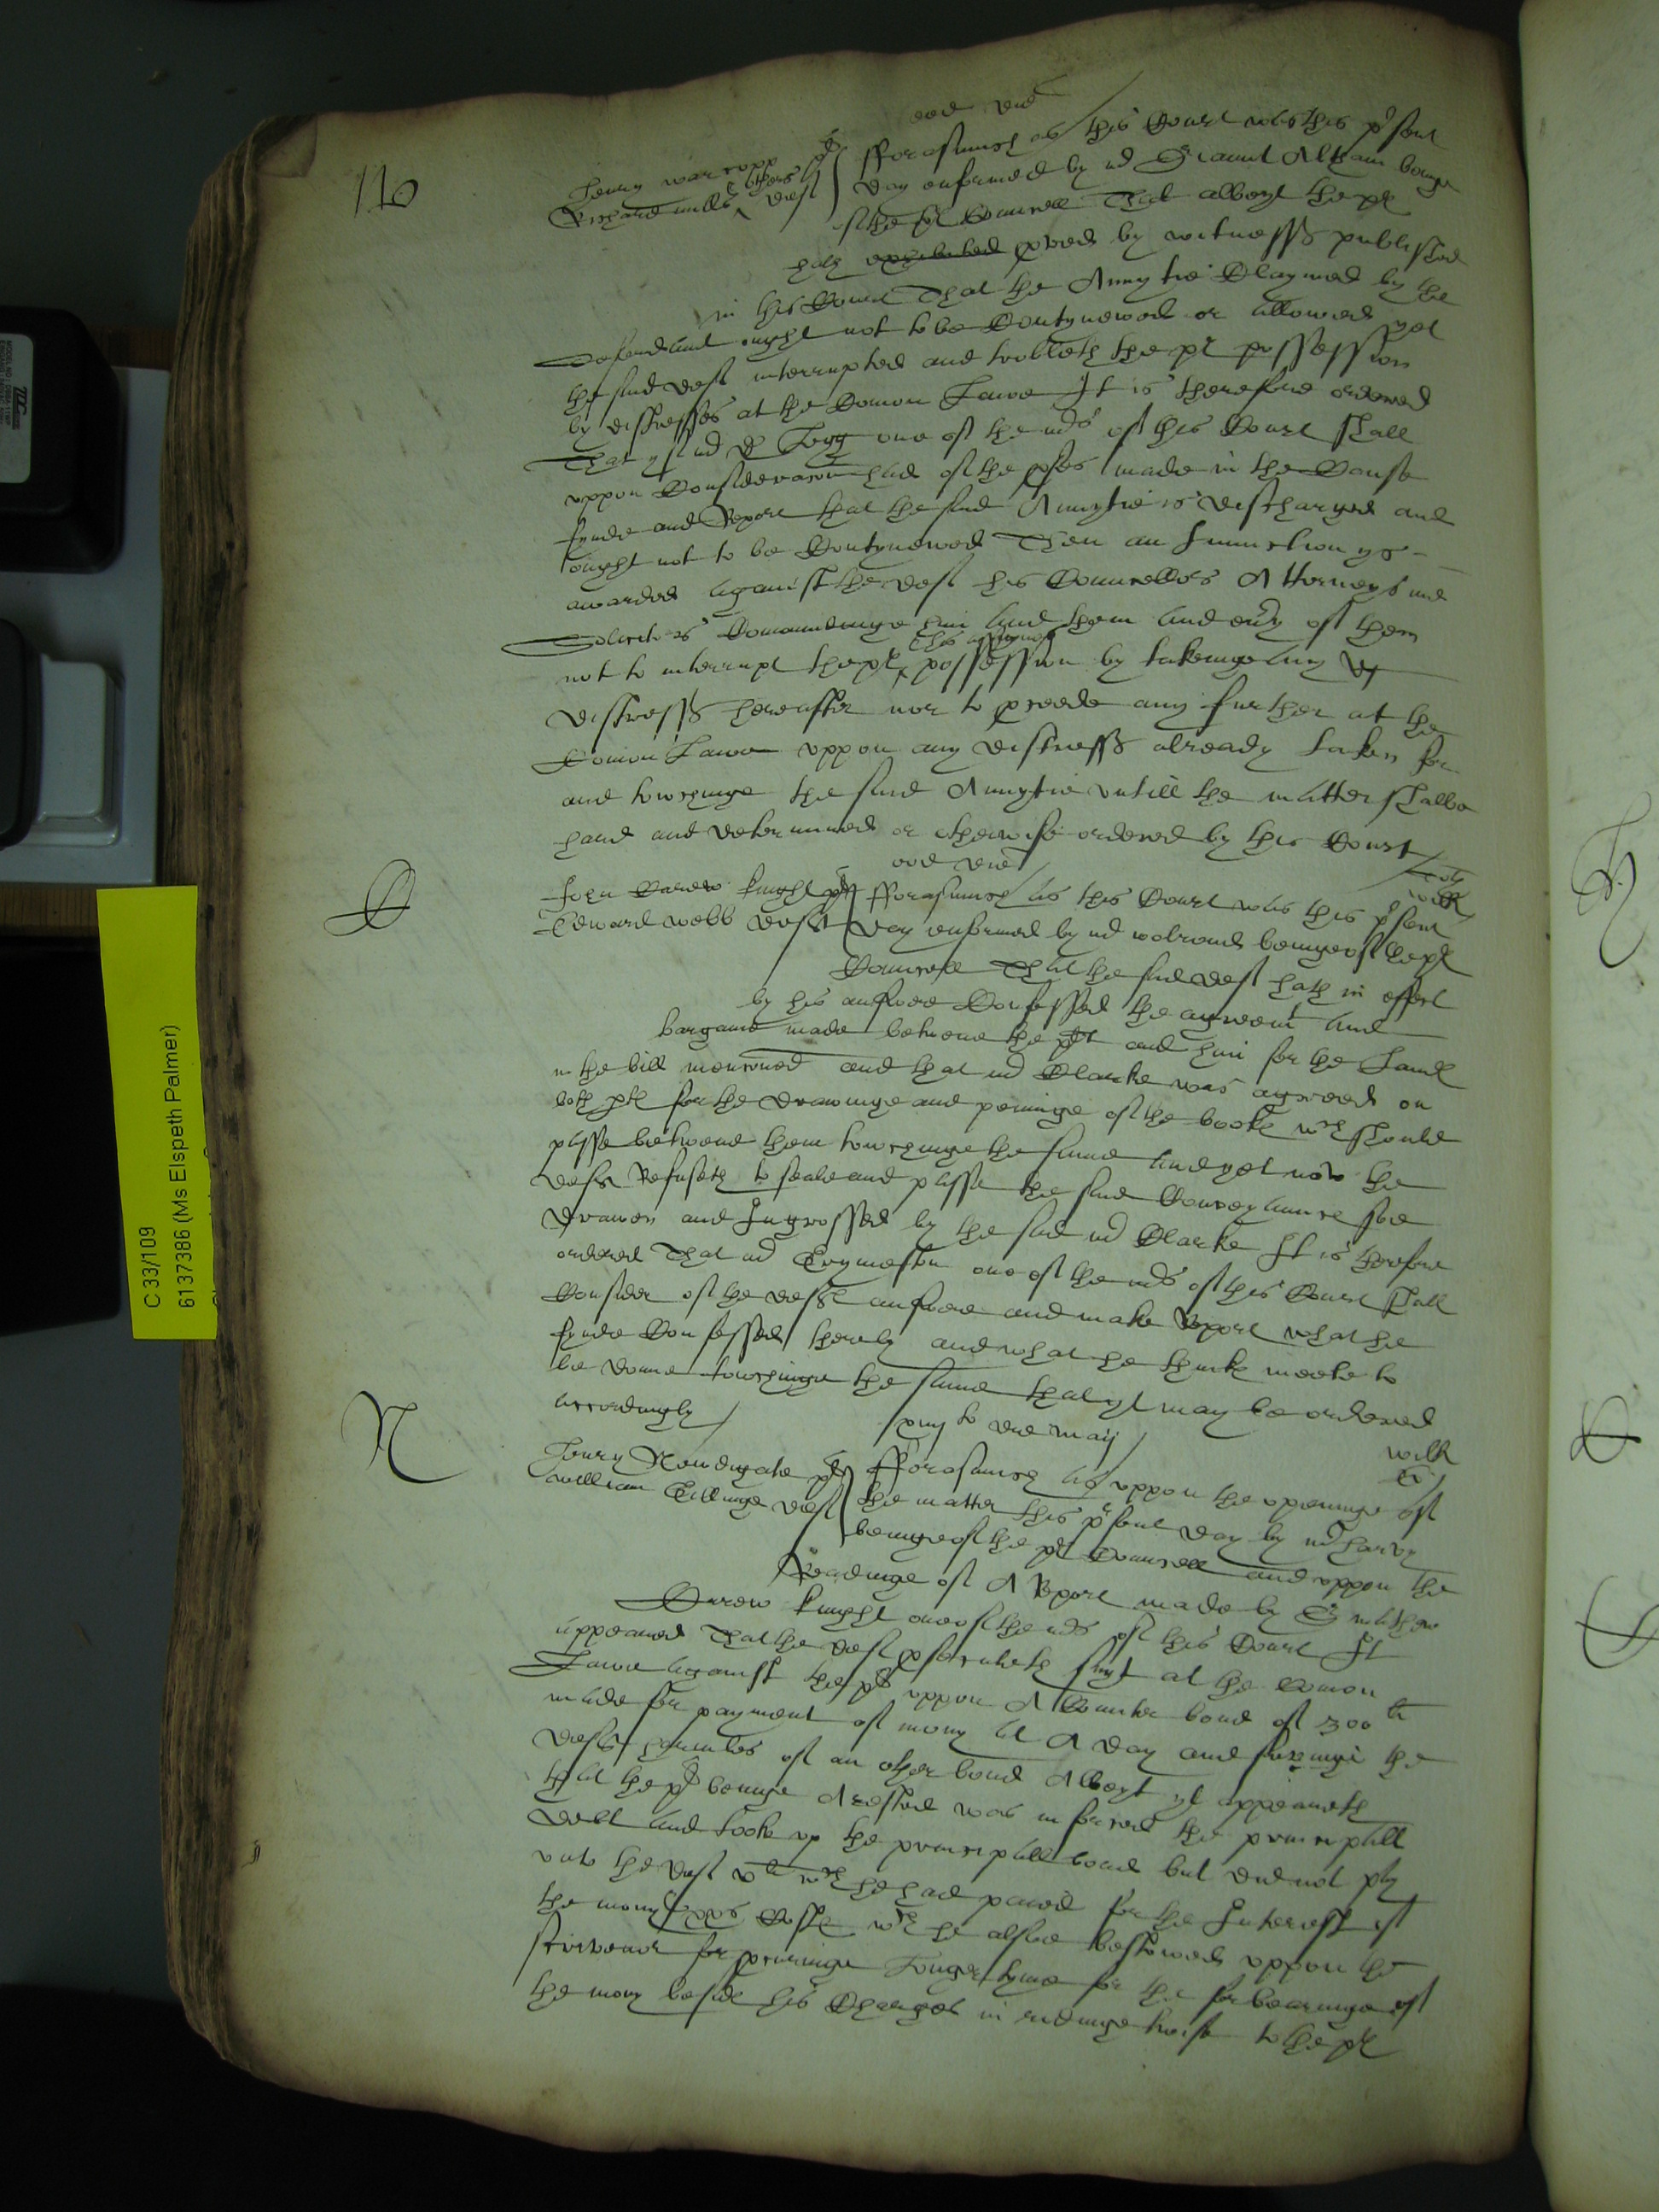 116
eod die
Henry warcopp pl
Richard mills & others def
fforasmuch as this Court was this pʳsent
day enformed by mʳ Edward Altham beinge
of the pl Councell That albeyt the pl
hath exhibited proved by witnesses published
in this Court That the Annytie Claymed by the
Defendant ought not to be Contynewed or allowed yet
the said deft interrupted and trobleth the pl possession
by distresses at the Comon Lawe It is therefore ordered
That yf mʳ D Legg one of the mʳs of this Court shall
uppon Consideracon had of the pfes made in the Cause
fynde and Report that the said Annytie is discharged and
ought not to be Contynewed Then an Iniunction ys
awarded against the deft his Councellors Attorneys and
Solicitors Comaundinge him and them and eūy of them
not to interrupt the pl & his assignes possession by takeinge any
distresse hereafter nor to pceede any further at the
Comon Lawe uppon any distresse already taken for
and towchinge the said Annytie untill the matter shalbe
heard and determined or otherwise ordered by this Court
eod die
O
John Carew knight pl
Edward webb deft
fforasmuch as this Court was this pʳsent
day enformed by mʳ walrond beinge of the pl
Councell That the said deft hath in effect
by his answere Confessed the agreemt and
bargaine made betweene the plt and him for the Landℯ
in the bill mencioned and that mʳ Clarke was agreed on
both ptℯ for the draweinge and peninge of the bookℯ wᶜh should
passe betweene them towchinge the same and yet now the
deft Refuseth to seale and passe the said Conveyaunce soe
drawen and Ingrossed by the said mʳ Clarke It is therefore
ordered That mʳ Evymeston one of the mʳs of this Court shall
Consider of the deftℯ answere and make Report what he
fynde Confessed therby and what he thinkℯ meete to
be donne towchinge the same that yt may be ordered
accordingly
primo die maij
willℯ
N
Henry Newdigate pl
william Cillinge deft
fforasmuch as uppon the openinge of
the matter this pʳsent day by mʳ harvy
beinge of the pl Councell and uppon the
Readinge of A Report made by Sʳ mathew
Carew knight one of the mʳs of this Court It
appeared That the deft psecuteth suyt at the Comon
Lawe against the pl uppon A Counter bond of 300li
made for payment of mony at A day and savinge the
deft harmles of an other bond Albeyt yt appeareth
that the pl beinge Arested was inforced the principall
debt and tooke up the principall bond but did not pay
unto the deft vli wᶜh he had paied for the Interest of
the mony xxs Costℯ wᶜh he alsoe bestowed uppon the
scrivenor for procuringe longer tyme for the forbearinge of
the mony beside his Charges in rideinge twise to the pl
C 33/109
6137386 (Ms Elspeth Palmer)